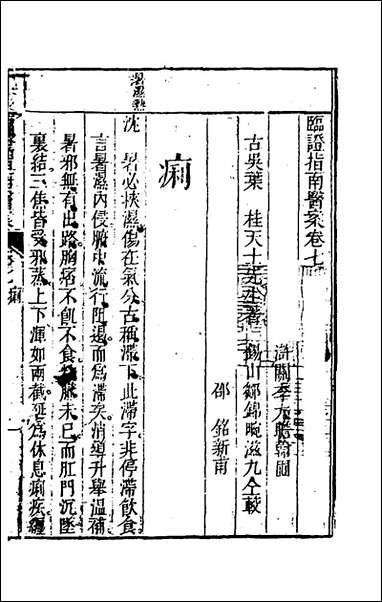 臨證指南醫案卷七
滸關李大瞻翰圃
古吳葉 桂天士先生著 錫山鄒錦畹滋九仝較
邵 銘新甫
痢
暑濕熱
沈 暑必挾濕傷在氣分古稱滯下此滯字非停滯飲食
言暑濕內侵腑中流行阻遏而為滯矣消導升舉溫補
暑邪無有出路胸痞不飢不食 未已而肛門沉墜
裏結三焦皆受邪蒸上下渾如兩截延為休息痢疾纏